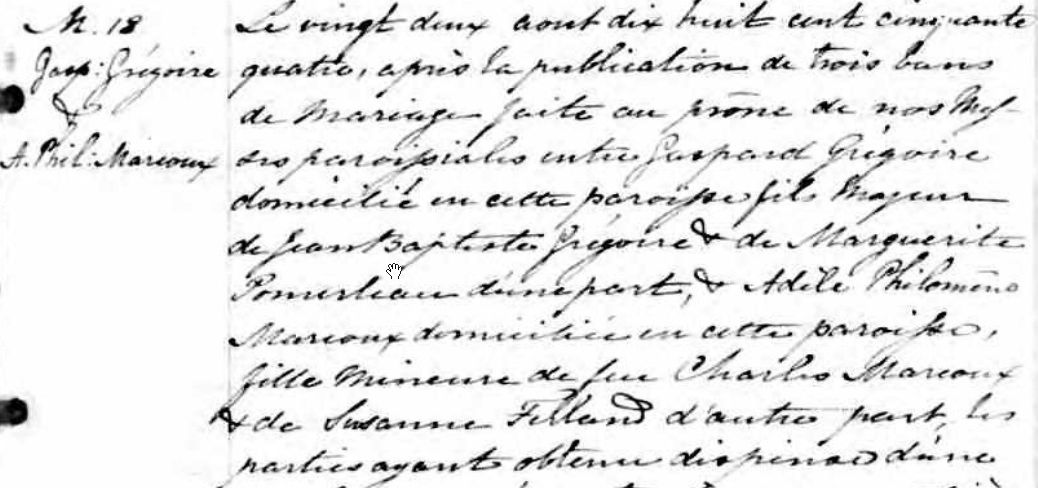 M. 18
Gasp: Grégoire
&
A. Phil: Marcoux
Le vingt deux aout dix huit cent cinquante
quatre, après la publication de trois bans
de Mariage faite au prône de nos Mes-
ses paroissiales entre Gaspard Grégoire
domicilié en cette paroisse fils Majeur
de Jean Baptiste Grégoire & de Marguerite
Pomerleau d'une part, & Adèle Philomène
Marcoux domiciliée en cette paroisse,
fille Mineure de feu Charles Marcoux
& de Susanne d'autre part, les
parties ayant obtenu dispense d'une